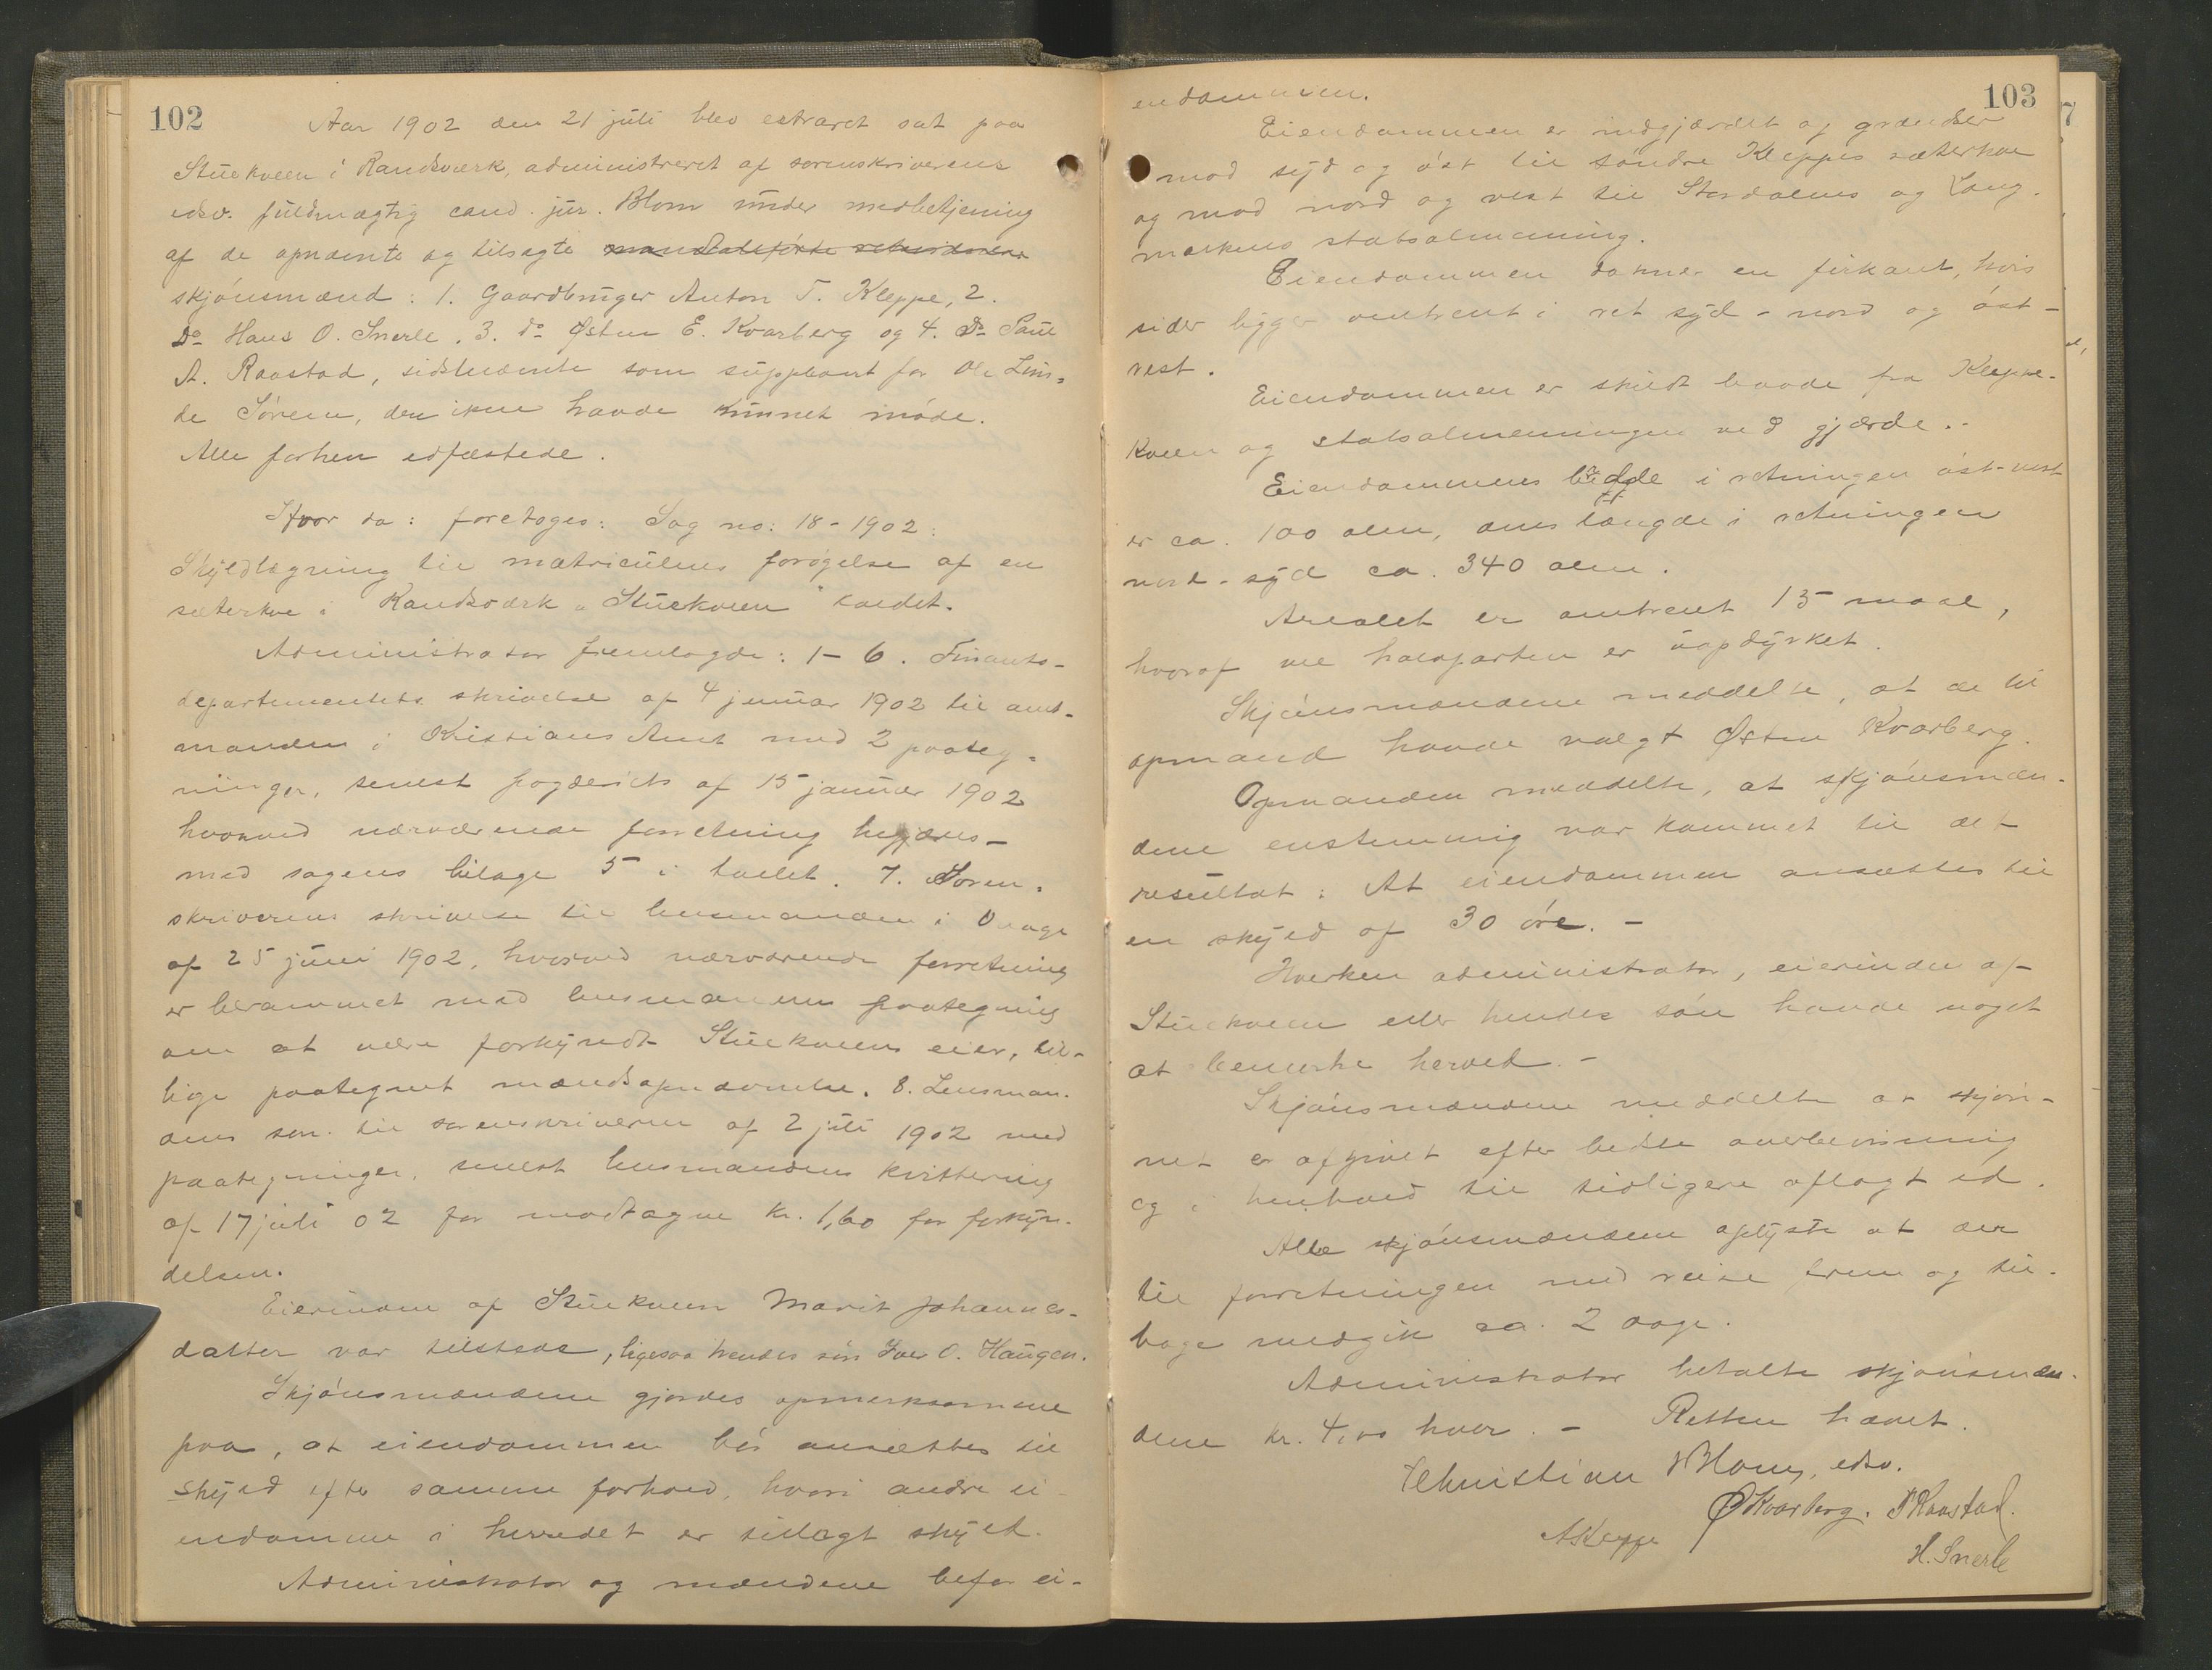 102
Aar 1902 den 21 juli blev extraret sat paa
Stuekveen i Randsværk, administreret af sorenskriverens
edsv. fuldmægtig cand. jur. Blom under medbetjening
af de opnævnte og tilsagte
skjønsmænd: 1. Gaardbruger Anton T. Kleppe, 2.
Do Hans O. Snerle, 3. do Østen E. Kvarberg og 4. Do Paul
A. Raastad, sidstnævnte som suppleant for Ole Lin-
de Søreen, der ikke havde kunnet møde.
Alle forhen edfæstede.
Hvor da: foretoges: Sag no: 18-1902:
Skyldlægning til matriculens forøgelse af en
sæterkve i Randsværk „Stuekveen" kaldet.
Administrator fremlagde: 1-6. Finants-
departementets skrivelse af 4 januar 1902 til amt-
manden i Kristians Amt med 2 paateg-
ninger, senest fogderiets af 15 januar 1902
hvorved nærværende forretning begjæres -
med sagens bilage 5 i tallet. 7. Soren-
skriverens skrivelse til lensmanden i Vaage
af 25 juni 1902, hvorved nærværende forretning
er berammet med lensmandens paategning
om at være forkyndt Stuekveens eier, til-
lige paategnet mændsopnævnelse. 8. Lensman-
dens skr. til sorenskriveren af 2 juli 1902 med
paategninger, senest lensmandens kvittering
af 17 juli 02 for modtagne kr. 1,60 for forkyn-
delsen.
Eierinden af Stuekveen Marit Johannes-
datter var tilstede, ligesaa hendes søn Iver O. Haugen.
Skjønsmændene gjordes opmerksomme
paa, at eiendommen bør ansættes til
skyld efter samme forhold, hvori andre ei-
endomme i herredet er tillagt skyld.
Administrator og mændene befor ei-
103
endommen.
Eiendommen er indgjærdet og grændser
mod syd og øst til søndre Kleppes sæterkve
og mod nord og vest til Stordalens og Lang-
markens statsalmenning.
Eiendommen danner en firkant, hvis
sider ligger omtrent i ret syd-nord og øst-
vest.
Eiendommen er skildt baade fra Kleppe-
kveen og statsalmenningen ved gjærde.-
Eiendommens bredde i retningen øst-vest
er ca. 100 alen, dens længde i retningen
nord-syd ca. 340 alen.
Arealet er omtrent 15 maal,
hvoraf vel halvparten er uopdyrket.
Skjønsmændene meddelte, at de til
opmand havde valgt Østen Kvarberg.
Opmanden meddelte, at skjønsmæn-
dene enstemmig var kommet til det
resultat: At eiendommen ansættes til
en skyld af 30 øre. -
Hverken administrator, eierinden af
Stuekveen eller hendes søn havde noget
at bemerke herved. -
Skjønsmændene meddelte at skjøn-
net er afgivet efter bedste overbevisning
og i henhold til tidligere aflagt ed.
Alle skjønsmændene oplyste at der
til forretningen med reise frem og til-
bage medgik ca. 2 dage.
Administrator betalte skjønsmæn-
dene kr. 4,00 hver. - Retten hævet.
Christian Blom, edsv.
Ø Kvarberg. P Raastad.
A Kleppe
H. Snerle